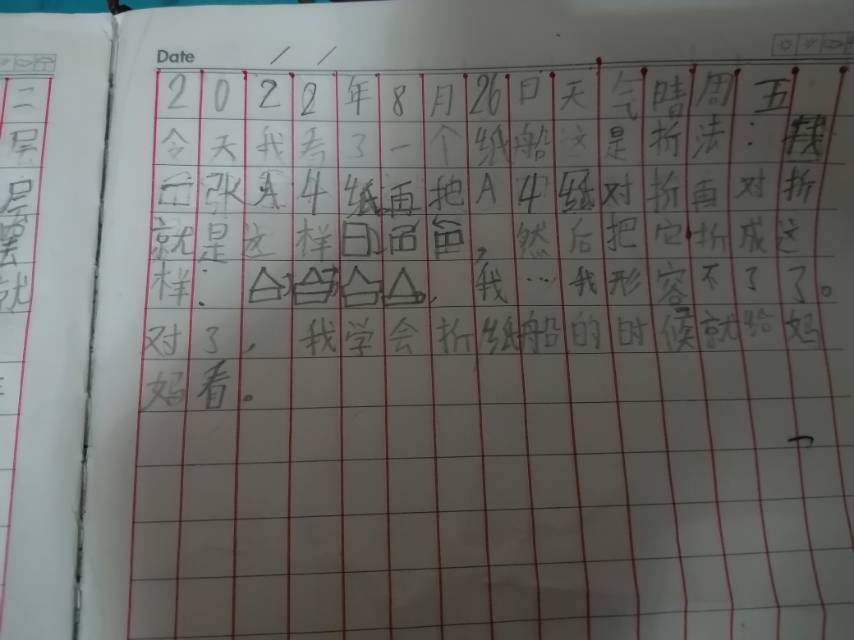 Date / /
2022年8月26日天气晴周五
今天我看了一个纸船这是折法：找
出张A4纸再把A4纸对折再对折
就是这样，然后把它折成这
样：，我…我形容不了了。
对了，我学会折纸船的时候就给妈
妈看。
二
层
层
罢
就